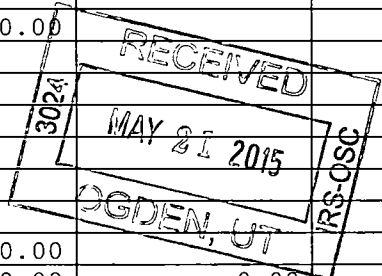 0.00
RECEIVED
3024
MAY 21 2015
IRS-OSC
OGDEN, UT
0.00
0.00